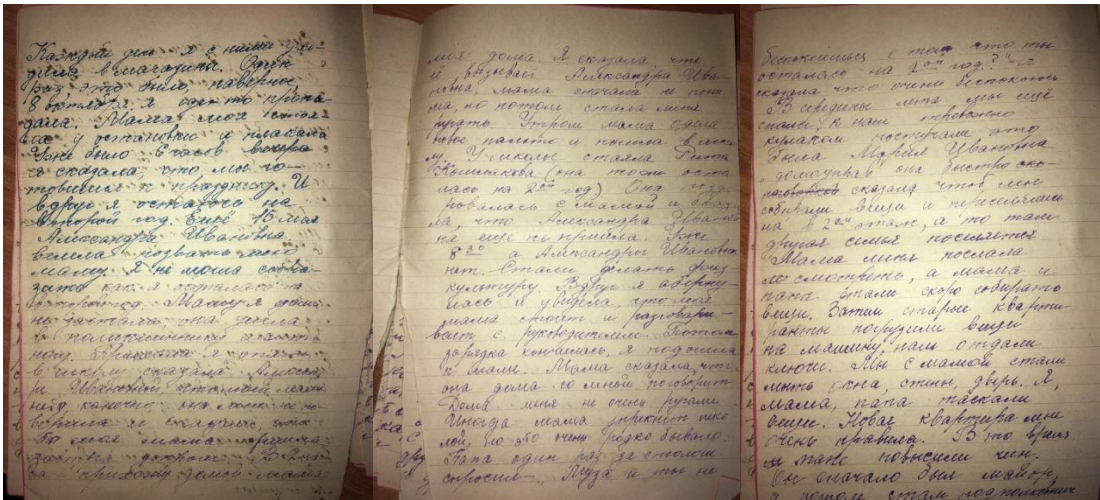 Каждый день я с ними ухо-
дила в магазины. Один
раз, это было, наверное,
8 октября, я
Мама моя стоя-
у остановки и плакала
Уже было 6 часов вечера
я сказала, что мы го-
товились к празднику. И
вдруг я осталась на
второй год. Ещё 15 мая
Александра Ивановна
велела позвать мою
маму. Я не могла
как я осталась на
второй год. Маму я дома
не застала, она ушла
в поликлинику
я
в школу сказала
Ивановой, что моей мамы
нет, конечно, она мне не по-
верила и
моя мама пришла
домой мама
моя дома. Я сказала, что
её вызывает Александра Ива-
новна, мама сначала не поня-
ла, но потом стала меня
ругать. Утром мама одела
пальто и пошла в шко-
лу. У школы стояла Рита
(она тоже оста-
лась на 2ой год) Она поздо-
ровалась с мамой и сказа-
ла, что Александра Иванов-
на ещё не пришла. Уже
8 30 а Александры Ивановны
нет. Стали делать физ-
культуру. Вдруг я оберну-
лась и увидела, что моя
мама стоит и разговари-
вает с руководителем. Потом
зарядка кончилась, я подошла
к маме. Мама сказала, что
она дома со мной поговорит
Дома меня не очень ругали
Иногда мама упрекнёт шко-
лой, но это очень редко бывало.
Папа один раз за столом
спросил „Муза и ты не
беспокоишься о том что ты
осталась на 2ой год?" Я
сказала что очень беспокоюсь
В середине лета мы ещё
спали, к нам тревожно
кулаком постучали это
была Мария Ивановна
домоуправ она быстро ско-
сказала чтоб мы
собирали вещи и переселялись
на 2ой этаж, а то там
другая семья поселяется
Мама меня послала
посмотреть, а мама и
папа стали скоро собирать
вещи. Затем старые кварти-
ранты погрузили вещи
на машину, нам отдали
ключи. Мы с мамой стали
мыть окна, стены, дверь. Я,
мама, папа таскали
вещи. Новая квартира мне
очень нравила. В то время
и папе повысили чин.
Он сначало был майор,
а потом стал подполковник